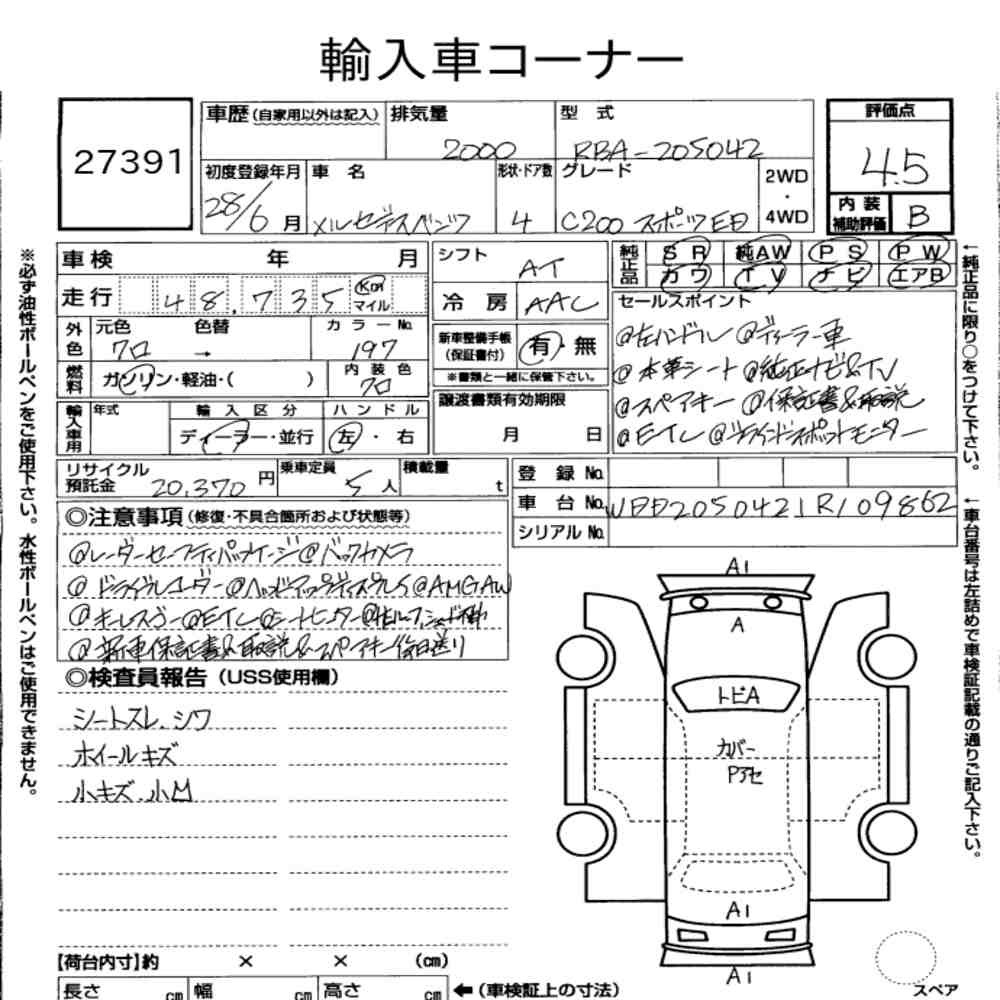 輸入車コーナー
27391
車歴 (自家用以外は記入) 排気量 2000 型 式 RBA-205042
評価点 4.5
初度登録年月 28/6 月 車 名 メルセデスベンツ 形状・ドア数 4 グレード C200 スポーツ 2WD ・ 4WD
内 装 補助評価 B
車 検 年 月
走 行 48,735 Km マイル
シフト AT
冷 房 AAC
純正品 SR 純AW PS PW
カワ TV ナビ エアB
外色 元色 クロ 色替 → カラーNo. 197
燃料 ガソリン・軽油・( ) 内装色 クロ
新車整備手帳 (保証書付) 有・無
※書類と一緒に保管下さい。
譲渡書類有効期限
月 日
セールスポイント
@左ハンドル @ディーラー車
@本革シート @純正ナビ&TV
@スペアキー @保証書&取説
@ETC @ブラインドスポットモニター
輸入車用 年式 輸入区分 ハンドル
ディーラー・並行 左・右
リサイクル預託金 20,370 円 乗車定員 5 人 積載量 t
登 録 No.
車 台 No. WDD2050421R109862
シリアル No.
◎注意事項 (修復・不具合箇所および状態等)
@レーダーセーフティパッケージ@バックカメラ
@ドライブレコーダー@ヘッドアップディスプレイ@AMGAW
@キーレスゴー@ETC@シートヒーター
@新車保証書&取説&スペアキー後日送り
◎検査員報告 (USS使用欄)
シートスレ、シワ
ホイールキズ
小キズ、小凹
A1
A
トビA
カバー
Pアセ
A1
A1
スペア
【荷台内寸】約 × × (cm)
長さ cm 幅 cm 高さ cm ← (車検証上の寸法)
※必ず油性ボールペンをご使用下さい。水性ボールペンはご使用できません。
←純正品に限り○をつけて下さい。
←車台番号は左詰めで車検証記載の通りご記入下さい。